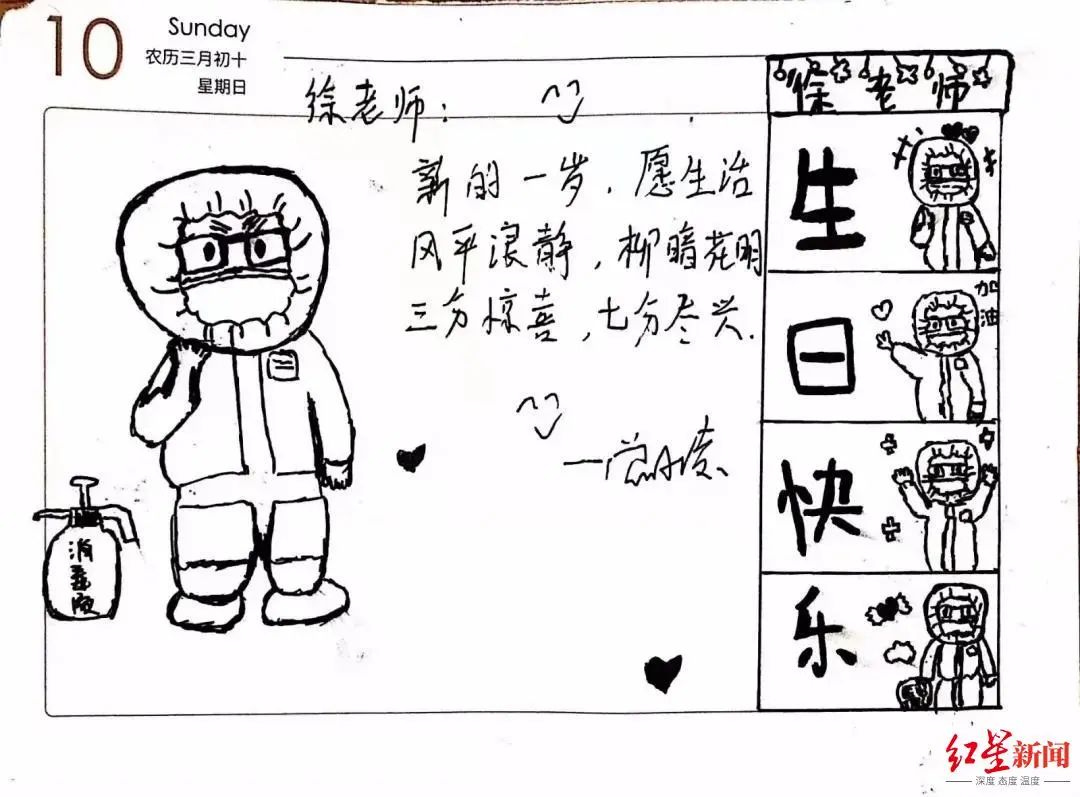 10
Sunday
农历三月初十
星期日
徐老师：
新的一岁，愿生活
风平浪静，柳暗花明
三分惊喜，七分尽兴.
消毒液
徐老师
生
日
加油
快
乐
红星新闻
深度 态度 温度